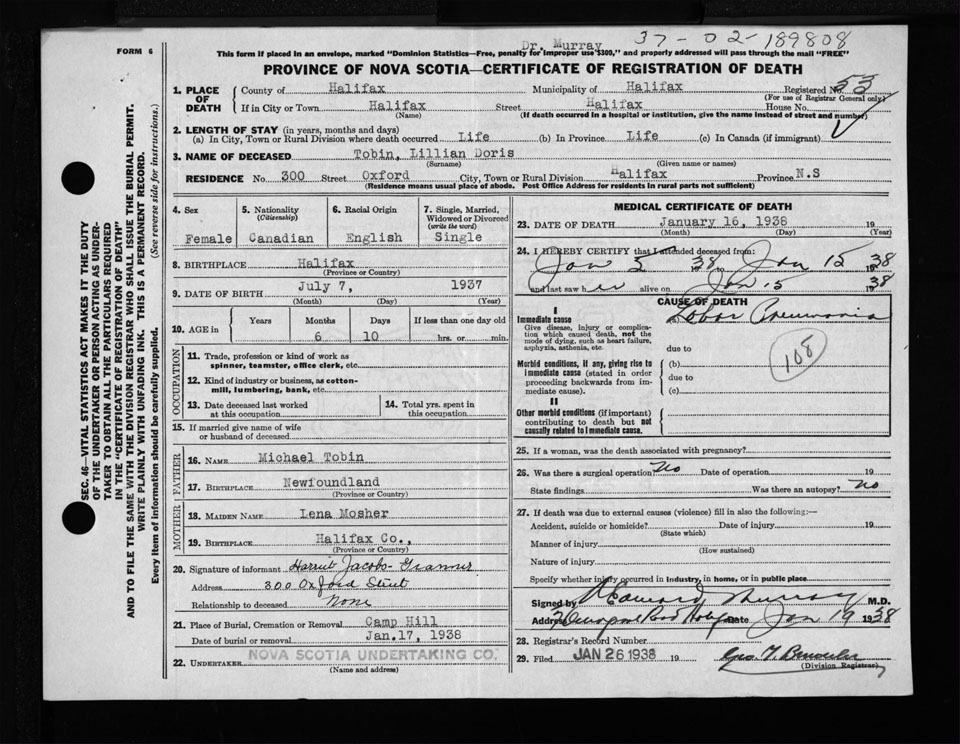 37-02-189808
FORM 6
Dr. Murray
This form if placed in an envelope, marked "Dominion Statistics—Free, penalty for improper use $300," and properly addressed will pass through the mail "FREE"
PROVINCE OF NOVA SCOTIA—CERTIFICATE OF REGISTRATION OF DEATH
SEC. 46—VITAL STATISTICS ACT MAKES IT THE DUTY
OF THE UNDERTAKER OR PERSON ACTING AS UNDER-
TAKER TO OBTAIN ALL THE PARTICULARS REQUIRED
IN THE "CERTIFICATE OF REGISTRATION OF DEATH"
AND TO FILE THE SAME WITH THE DIVISION REGISTRAR WHO SHALL ISSUE THE BURIAL PERMIT.
WRITE PLAINLY WITH UNFADING INK. THIS IS A PERMANENT RECORD.
Every item of information should be carefully supplied. (See reverse side for instructions.)
1. PLACE OF DEATH
County of Halifax Municipality of Halifax Registered No. 53
(For use of Registrar General only)
If in City or Town Halifax Street Halifax House No.
(Name) (If death occurred in a hospital or institution, give the name instead of street and number)
2. LENGTH OF STAY (in years, months and days)
(a) In City, Town or Rural Division where death occurred Life (b) In Province Life (c) In Canada (if immigrant)
3. NAME OF DECEASED Tobin, Lillian Doris
(Surname) (Given name or names)
RESIDENCE No. 300 Street Oxford City, Town or Rural Division Halifax Province N.S
(Residence means usual place of abode. Post Office Address for residents in rural parts not sufficient)
4. Sex
Female
5. Nationality
(Citizenship)
Canadian
6. Racial Origin
English
7. Single, Married,
Widowed or Divorced
(write the word)
Single
8. BIRTHPLACE Halifax
(Province or Country)
9. DATE OF BIRTH July 7, 1937
(Month) (Day) (Year)
10. AGE in
Years Months Days If less than one day old
6 10 hrs. or min.
OCCUPATION
11. Trade, profession or kind of work as
spinner, teamster, office clerk, etc.
12. Kind of industry or business, as cotton-
mill, lumbering, bank, etc.
13. Date deceased last worked
at this occupation
14. Total yrs. spent in
this occupation
15. If married give name of wife
or husband of deceased
FATHER
16. NAME Michael Tobin
17. BIRTHPLACE Newfoundland
(Province or Country)
MOTHER
18. MAIDEN NAME Lena Mosher
19. BIRTHPLACE Halifax Co.,
(Province or Country)
20. Signature of informant Harriet Jacobs
Address 300 Oxford Street
Relationship to deceased none
21. Place of Burial, Cremation or Removal Camp Hill
Date of burial or removal Jan.17, 1938
22. UNDERTAKER NOVA SCOTIA UNDERTAKING CO.
(Name and address)
MEDICAL CERTIFICATE OF DEATH
23. DATE OF DEATH January 16, 1938 19
(Month) (Day) (Year)
24. I HEREBY CERTIFY that I attended deceased from:
Jan 5 1938 to Jan 15 1938
and last saw her alive on Jan 15 1938
CAUSE OF DEATH
I
Immediate cause
Give disease, injury or complica-
tion which caused death, not the
mode of dying, such as heart failure,
asphyxia, asthenia, etc.
(a) Lobar Pneumonia
due to
108
Morbid conditions, if any, giving rise to
immediate cause (stated in order
proceeding backwards from im-
mediate cause).
(b)
due to
(c)
II
Other morbid conditions (if important)
contributing to death but not
causally related to immediate cause.
25. If a woman, was the death associated with pregnancy?
26. Was there a surgical operation? No Date of operation 19
State findings Was there an autopsy? no
27. If death was due to external causes (violence) fill in also the following:—
Accident, suicide or homicide? Date of injury 19
(State which)
Manner of injury
(How sustained)
Nature of injury
Specify whether injury occurred in industry, in home, or in public place
Signed by Murray M.D.
Address Date Jan 19 1938
28. Registrar's Record Number
29. Filed JAN 26 1938 19
(Division Registrar)